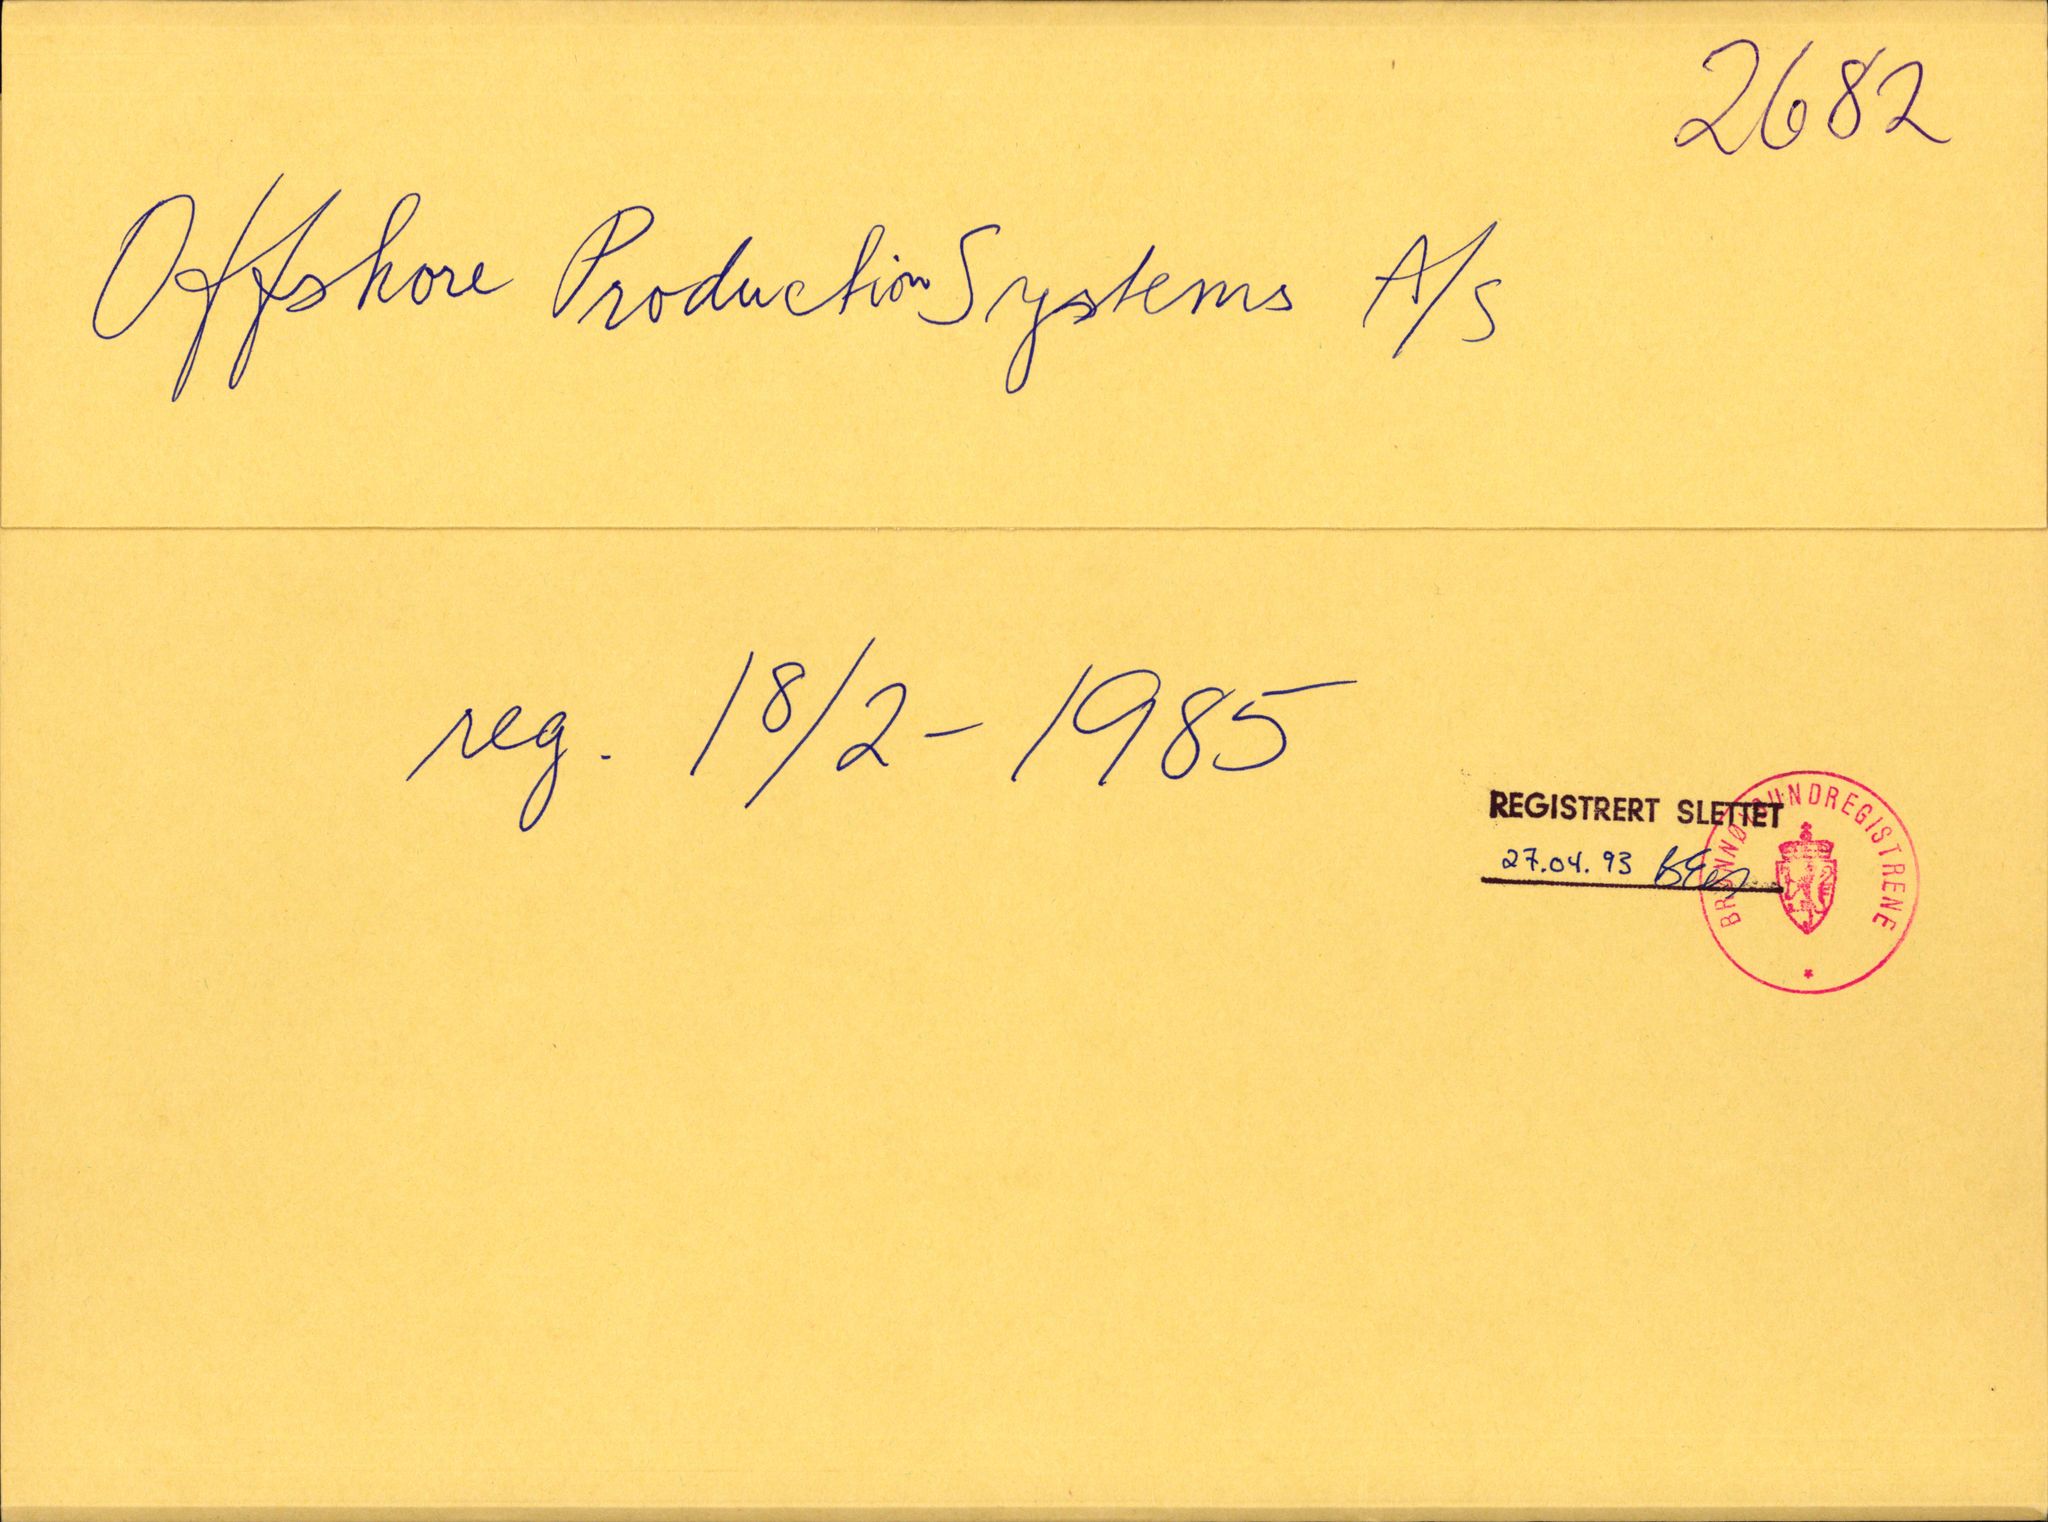 2682
Offshore Production Systems A/S
reg. 18/2-1985
REGISTRERT SLETTET
27.04.93
BRØNNØYSUNDREGISTRENE